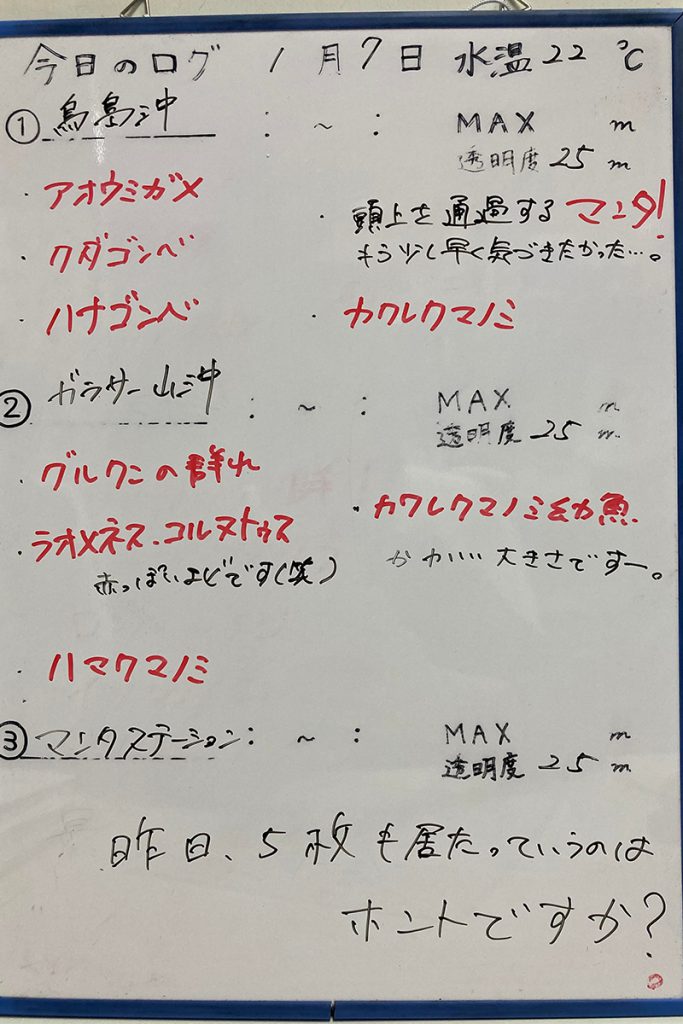 今日のログ 1月7日 水温22℃
① 鳥島沖 : ~ : MAX m
透明度 25 m
・アオウミガメ
・クダゴンベ
・ハナゴンベ
・頭上を通過するマンタ!
もう少し早く気づきたかった…。
・カクレクマノミ
② ガラサー山沖 : ~ : MAX m
透明度 25 m
・グルクンの群れ
・ラオメネス・コルヌトゥス
赤っぽいよどです(笑)
・ハマクマノミ
・カクレクマノミ幼魚
かわいい大きさですー。
③ マンタステーション : ~ : MAX m
透明度 25 m
昨日、5枚も居たっていうのは
ホントですか?